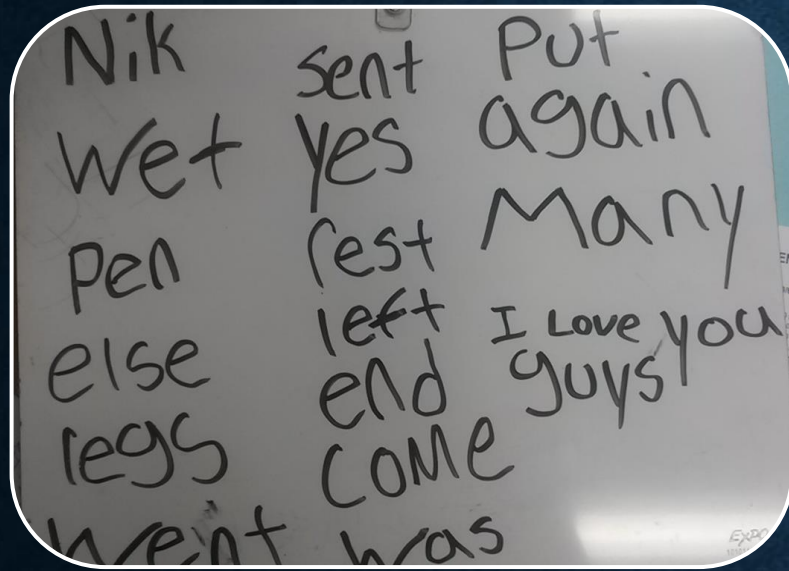 Nik
Wet
Pen
else
legs
went
sent
yes
rest
left
end
COMe
was
Put
again
Many
I Love you
guys
EXPO